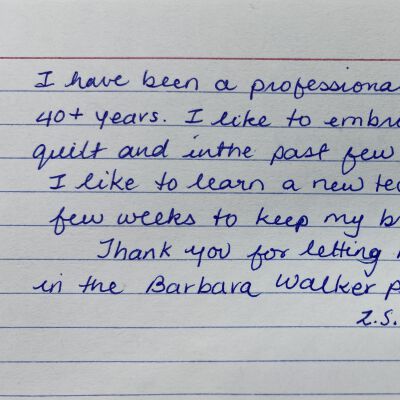 I have been a professiona
40+ years. I like to embro
quilt and inthe past few
I like to learn a new tec
few weeks to keep my b
Thank you for letting
in the Barbara Walker p
Z.S.